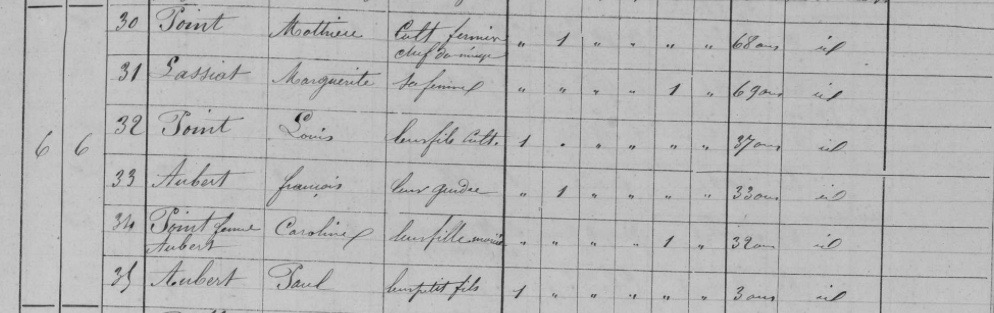 30 Point Mathieu Cult. fermier " 1 " " " " 68 ans id
chef de ménage
31 Lassiat Marguerite sa femme " " " " 1 " 69 ans id
32 Point Louis leur fils Cult. 1 " " " " " 37 ans id
6 6
33 Aubert françois leur gendre " 1 " " " " 33 ans id
34 Point femme Caroline leur fille mariée " " " " 1 " 32 ans id
Aubert
35 Aubert Paul leur petit fils 1 " " " " " 3 ans id